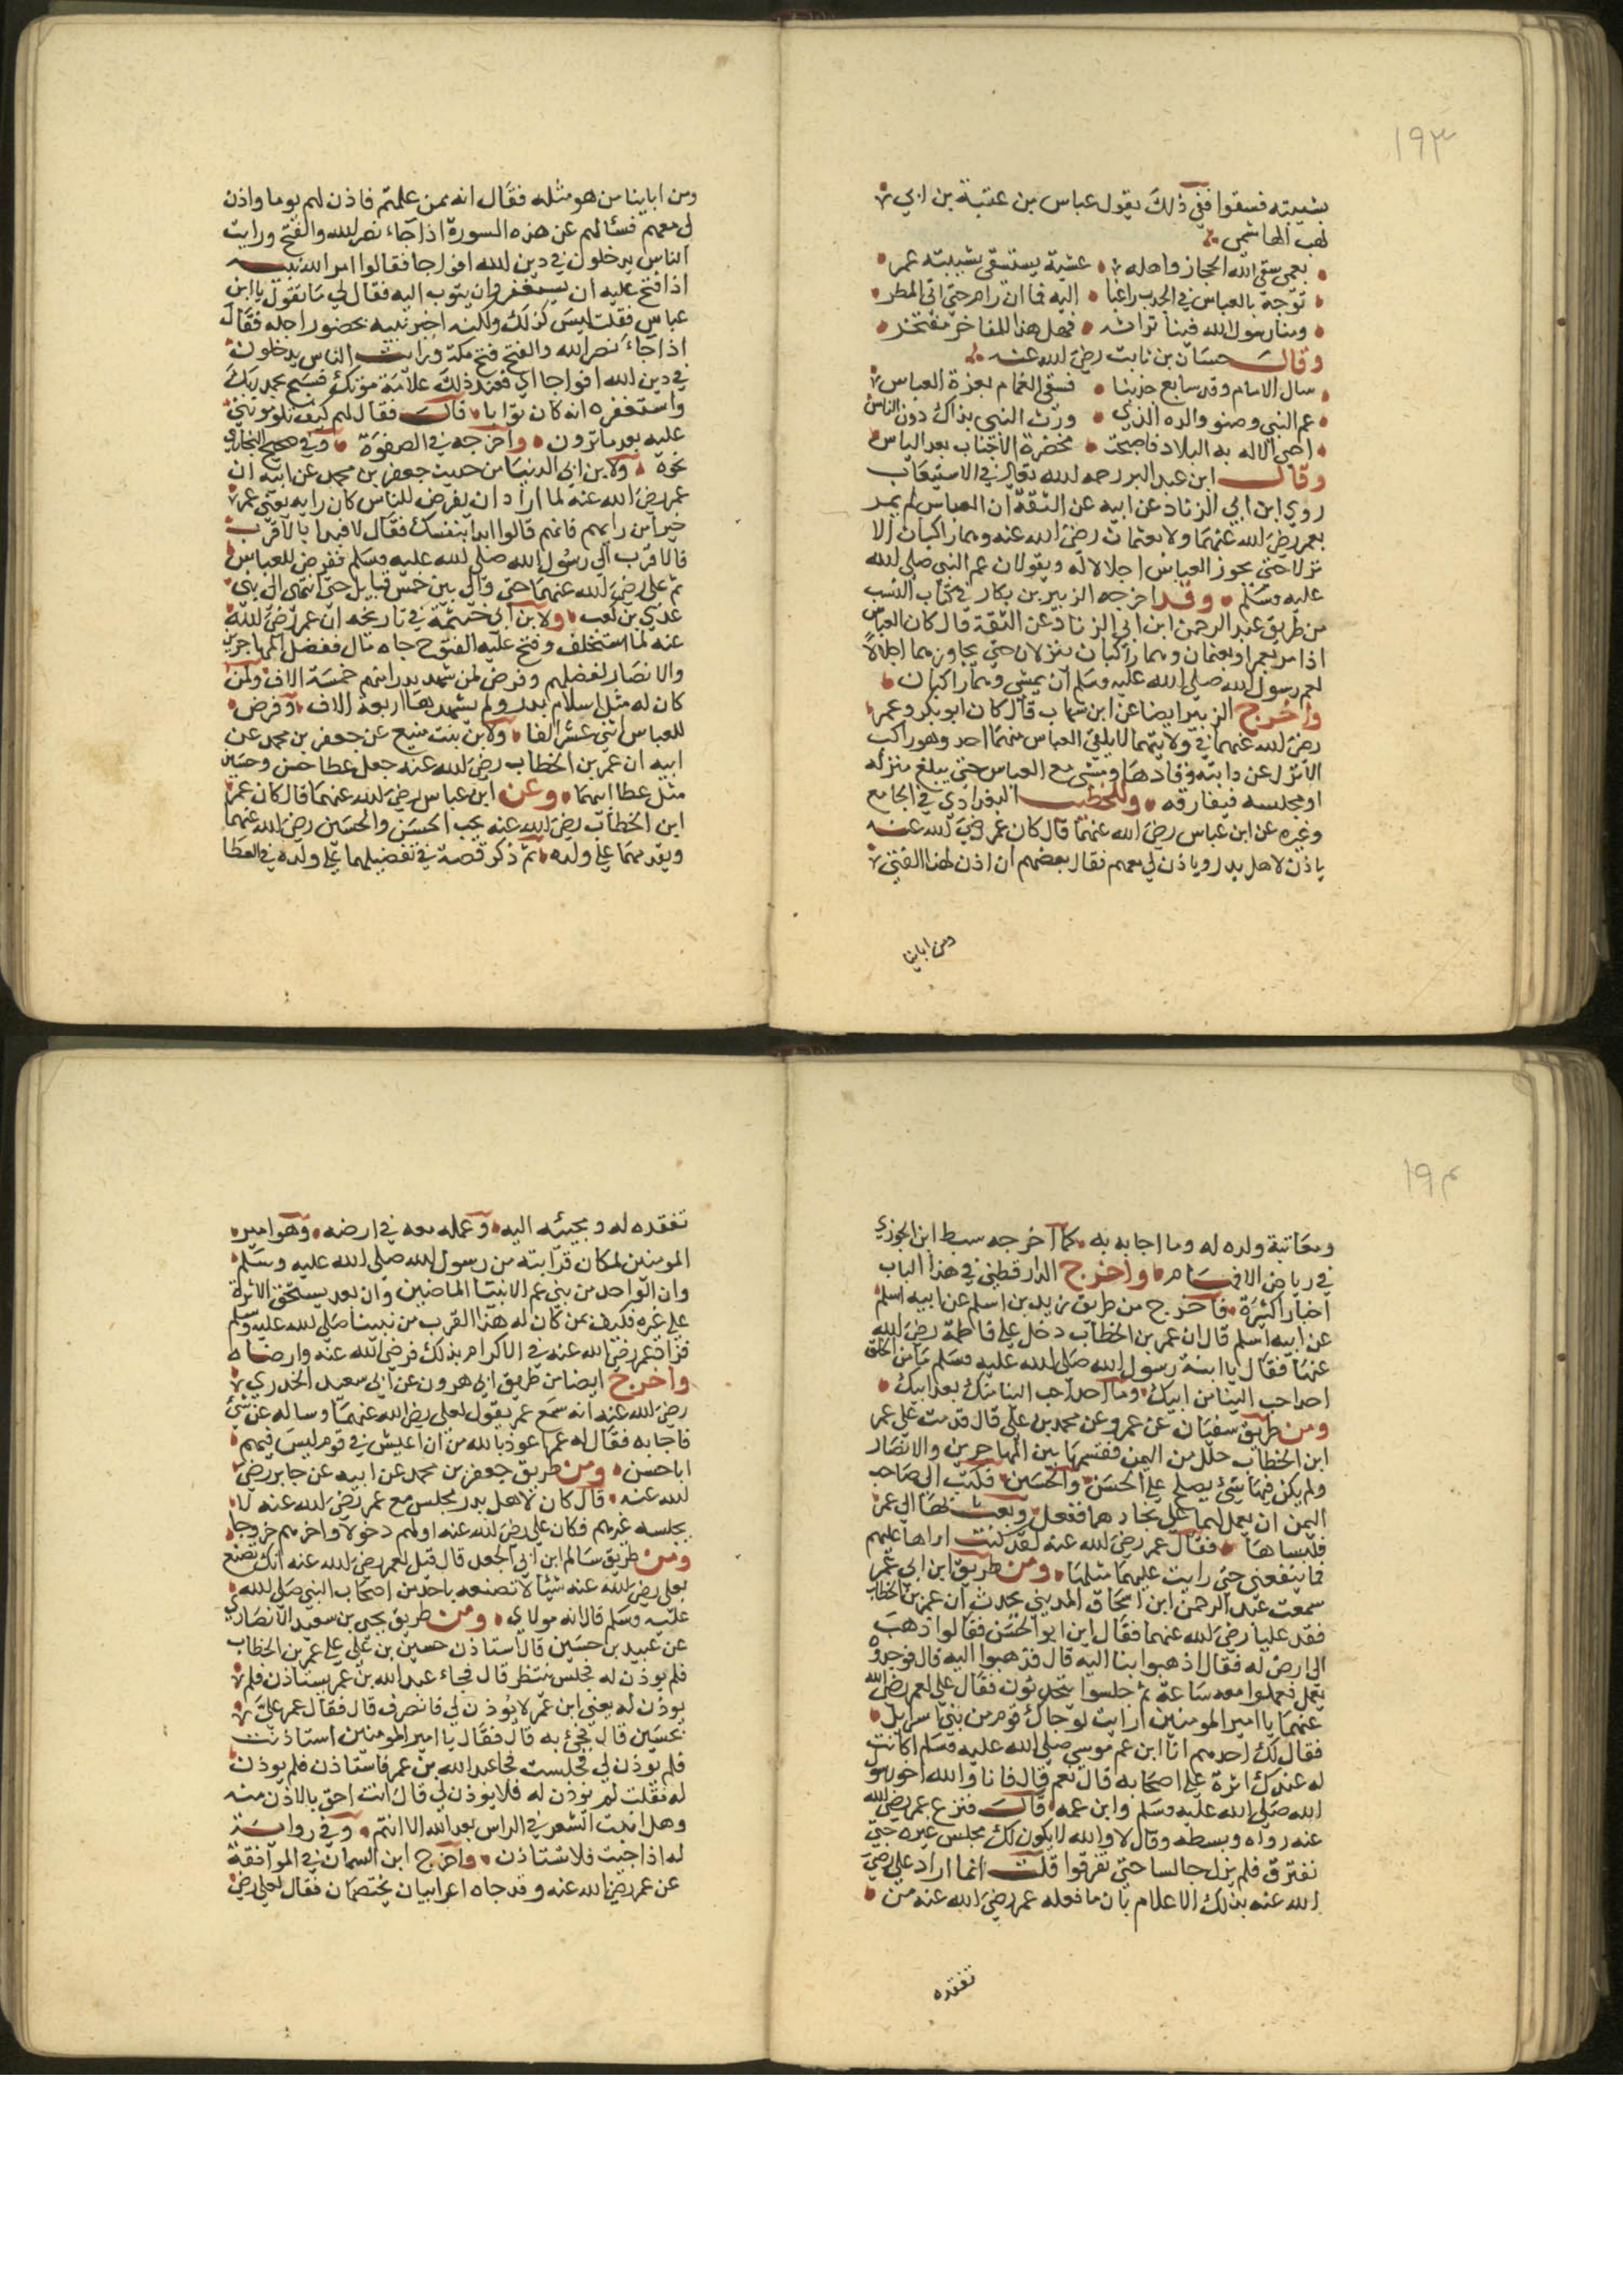 ١٩٣
بشيبته فسقوا ففي ذلك يقول عباس بن عتبة بن ابي
لهب الهاشمي
بعمي سقى الله الحجاز واهله عشية يستسقي بشيبته عمر
توجه بالعباس في الجدب راغبا اليه فما ان رام حتى اتى المطر
ومنا رسول الله فينا تراثه فهل هذا للمفاخر مفتخر
وقال حسان بن ثابت رضي الله عنه
سال الامام وقد تتابع جدبنا فسقى الغمام بعزة العباس
عم النبي وصنو والده الذي ورث النبي بذاك دون الناس
احيى الاله به البلاد فاصبحت مخضرة الاجناب بعد الياس
وقال ابن عبد البر رحمه الله تعالى في الاستيعاب
روي ابن ابي الزناد عن ابيه عن الثقة ان العباس لم يمر
بعمر رضي الله عنهما ولا بعثمان رضي الله عنه وهما راكبان الا
نزلا حتى يجوز العباس اجلالا له ويقولان عم النبي صلى الله
عليه وسلم وقد اخرجه الزبير بن بكار في كتاب النسب
من طريق عبد الرحمن ابن ابي الزناد عن الثقة قال كان العباس
اذا مر بعمر او بعثمان وهما راكبان ينزلان حتى يجاوزهما اجلالا
لعم رسول الله صلى الله عليه وسلم ان يمشي وهما راكبان
واخرج الزبير ايضا عن ابن شهاب قال كان ابو بكر وعمر
رضي الله عنهما في ولايتهما لا يلقى العباس منهما احد وهو راكب
الا نزل عن دابته وقادها ومشى مع العباس حتى يبلغ منزله
او مجلسه فيفارقه وللخطيب البغدادي في الجامع
وغيره عن ابن عباس رضي الله عنهما قال كان عمر رضي الله عنه
ياذن لاهل بدر وياذن لي معهم فقال بعضهم ان اذن لهذا الفتى
ومن ابناينا
ومن ابناينا من هو مثله فقال انه ممن علمتم فاذن لهم يوما واذن
لي معهم فسئالهم عن هذه السورة اذا جاء نصر الله والفتح ورايت
الناس يدخلون في دين الله افواجا فقالوا امر الله نبيه
اذا فتح عليه ان يستغفر وان يتوب اليه فقال لي ما تقول يا ابن
عباس فقلت ليس كذلك ولكنه اخبر نبيه بحضور اجله فقال
اذا جاء نصر الله والفتح فتح مكة ورايت الناس يدخلون
في دين الله افواجا اي فعند ذلك علامة موتك فسبح بحمد ربك
واستغفره انه كان توابا قال فقال لهم كيف تلوموني
عليه بعد ما ترون واخرجه في الصفوة وفي صحيح البخاري
نحوه ولابن ابي الدنيا من حديث جعفر بن محمد عن ابيه ان
عمر رضي الله عنه لما اراد ان يفرض للناس كان رايه يعني عمر
خيرا من رايهم فانهم قالوا ابدا بنفسك فقال لا فبدا بالاقرب
فالاقرب الى رسول الله صلى الله عليه وسلم ففرض للعباس
ثم علي رضي الله عنهما حتى والى بين خمس قبايل حتى انتهى الى بني
عدي بن كعب ولابن ابي خيثمة في تاريخه ان عمر رضي الله
عنه لما استخلف وفتح عليه الفتوح جاه مال ففضل المهاجرين
والانصار لفضلهم وفرض لمن شهد بدرا منهم خمسة الاف ولمن
كان له مثل اسلام بدر ولم يشهدها اربعة الاف وفرض
للعباس اثني عشر الفا ولابن بنت منيع عن جعفر بن محمد عن
ابيه ان عمر بن الخطاب رضي الله عنه جعل عطا حسن وحسين
مثل عطا ابيهما وعن ابن عباس رضي الله عنهما قال كان عمر
ابن الخطاب رضي الله عنه يحب الحسن والحسين رضي الله عنهما
ويقدمهما على ولده ثم ذكر قصة في تفضيلهما على ولده في العطا
١٩٤
ومعاتبة ولده له وما اجابه به كما اخرجه سبط ابن الجوزي
في رياض الافهام واخرج الدارقطني في هذا الباب
اخبارا كثيرة فاخرج من طريق زيد بن اسلم عن ابيه اسلم
عن ابيه اسلم قال ان عمر بن الخطاب دخل على فاطمة رضي الله
عنها فقال يا ابنة رسول الله صلى الله عليه وسلم ما من الخلق
احد احب الينا من ابيك وما احد احب الينا منك بعد ابيك
ومن طريق سفيان عن عمرو عن محمد بن علي قال قدمت على عمر
ابن الخطاب حلل من اليمن فقسمها بين المهاجرين والانصار
ولم يكن فيها شيء يصلح على الحسن والحسين فكتب الى صاحب
اليمن ان يعمل لهما على نجادهما ففعل وبعث بها الى عمر
فلبساها فقال عمر رضي الله عنه لقد كنت اراها عليهم
فما ينفعني حتى رايت عليهما مثلها ومن طريق ابن ابي عمر
سمعت عبد الرحمن ابن اسحاق المديني يحدث ان عمر بن الخطاب
فقد عليا رضي الله عنهما فقال اين ابو الحسن فقالوا ذهب
الى ارض له فقال اذهبوا بنا اليه قال فذهبوا اليه قال فوجدوه
يعمل فعملوا معه ساعة ثم جلسوا يتحدثون فقال علي لعمر رضي الله
عنهما يا امير المومنين ارايت لو جاك قوم من بني اسرايل
فقال لك احدهم انا ابن عم موسى صلى الله عليه وسلم اكانت
له عندك اثرة على اصحابه قال نعم قال فانا والله اخو رسول
الله صلى الله عليه وسلم وابن عمه قال فنزع عمر رضي الله
عنه رداه وبسطه وقال لا والله لا يكون لك مجلس غيره حتى
نفترق فلم يزل جالسا حتى تفرقوا قلت انما اراد علي رضي
الله عنه بذلك الاعلام بان ما فعله عمر رضي الله عنه من
تفقده
تفقده له ومجيئه اليه وعمله معه في ارضه وهو امير
المومنين لمكان قرابته من رسول الله صلى الله عليه وسلم
وان الواحد من بني عم الانبياء الماضين وان بعد يستحق الاثرة
على غيره فكيف بمن كان له هذا القرب من نبينا صلى الله عليه وسلم
فزاد عمر رضي الله عنه في الاكرام بذلك فرضي الله عنه وارضاه
واخرج ايضا من طريق ابي هرون عن ابي سعيد الخدري
رضي الله عنه انه سمع عمر يقول لعلي رضي الله عنهما وساله عن شيء
فاجابه فقال له عمر اعوذ بالله من ان اعيش في قوم ليس فيهم
ابا حسن ومن طريق جعفر بن محمد عن ابيه عن جابر رضي
الله عنه قال كان لاهل بدر مجلس مع عمر رضي الله عنه لا
يجلسه غيرهم فكان علي رضي الله عنه اولهم دخولا واخرهم خروجا
ومن طريق سالم ابن ابي الجعد قال قيل لعمر رضي الله عنه انك تصنع
بعلي رضي الله عنه شيئا لا تصنعه باحد من اصحاب النبي صلى الله
عليه وسلم قال انه مولاي ومن طريق يحيى بن سعيد الانصاري
عن عبيد بن حسين قال استاذن حسين بن علي على عمر بن الخطاب
فلم يوذن له فجلس ينتظر قال فجاء عبد الله بن عمر يستاذن فلم
يوذن له يعني ابن عمر لا يوذن لي فانصرف قال فقال عمر علي
بحسين قال فجيء به قال فقال يا امير المومنين استاذنت
فلم يوذن لي فجلست فجا عبد الله بن عمر فاستاذن فلم يوذن
له فقلت لم يوذن له فلا يوذن لي قال انت احق بالاذن منه
وهل انبت الشعر في الراس بعد الله الا انتم وفي رواية
له اذا جيت فلا تستاذن واخرج ابن السمان في الموافقة
عن عمر رضي الله عنه وقد جاه اعرابيان يختصمان فقال لعلي رضي